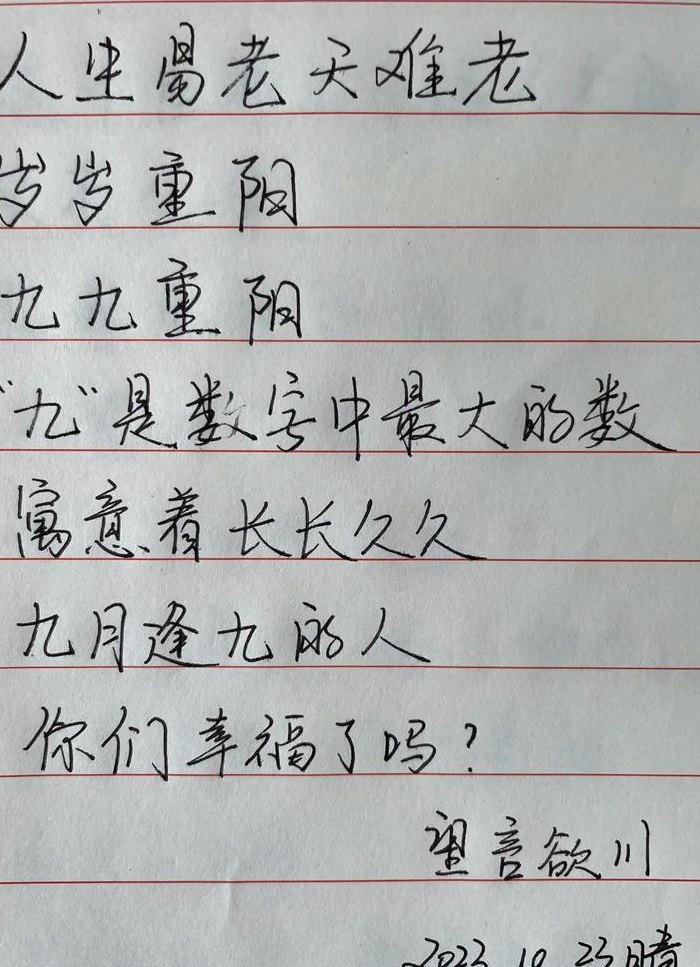 人生易老天难老
岁岁重阳
九九重阳
"九"是数字中最大的数
寓意着长长久久
九月逢九的人
你们幸福了吗?
望言欲川
2023.10.23晴